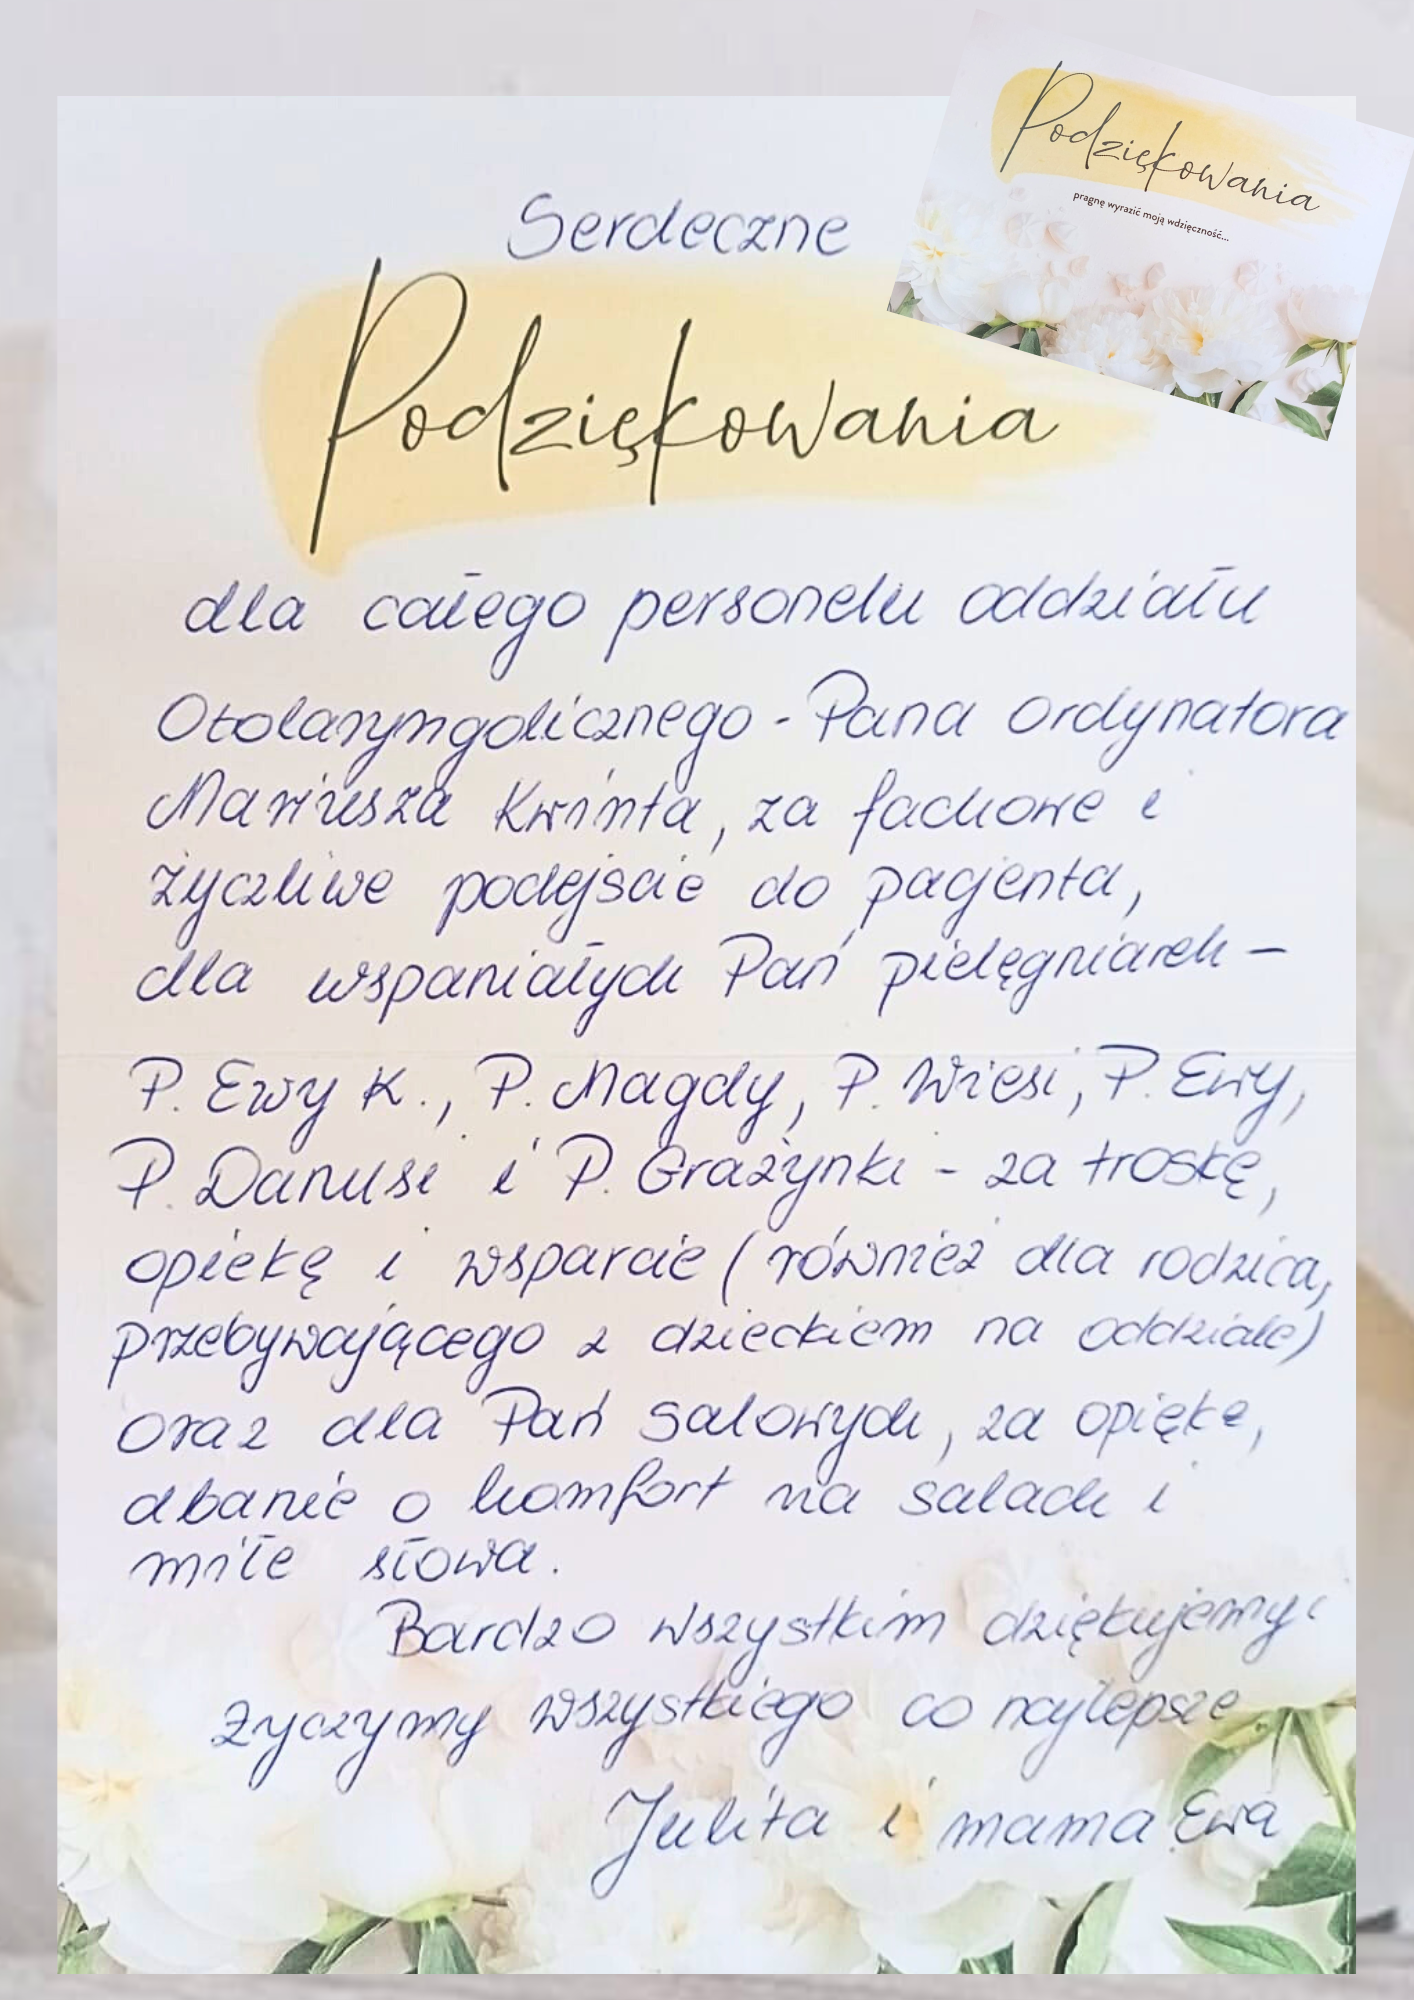 Podziękowania
pragnę wyrazić moją wdzięczność...
Serdeczne
Podziękowania
dla całego personelu oddziału
Otolaryngolicznego - Pana Ordynatora
Mariusza Kwinta, za fachowe i
życzliwe podejście do pacjenta,
dla wspaniałych Pań pielęgniarek -
P. Ewy K., P. Magdy, P. Wiesi, P. Ewy,
P. Danusi i P. Grażynki - za troskę,
opiekę i wsparcie (również dla rodzica,
przebywającego z dzieckiem na oddziale)
oraz dla Pań Salowych, za opiękę,
dbanie o komfort na salach i
miłe słowa.
Bardzo wszystkim dziękujemy i
życzymy wszystkiego co najlepsze
Julita i mama Ewa